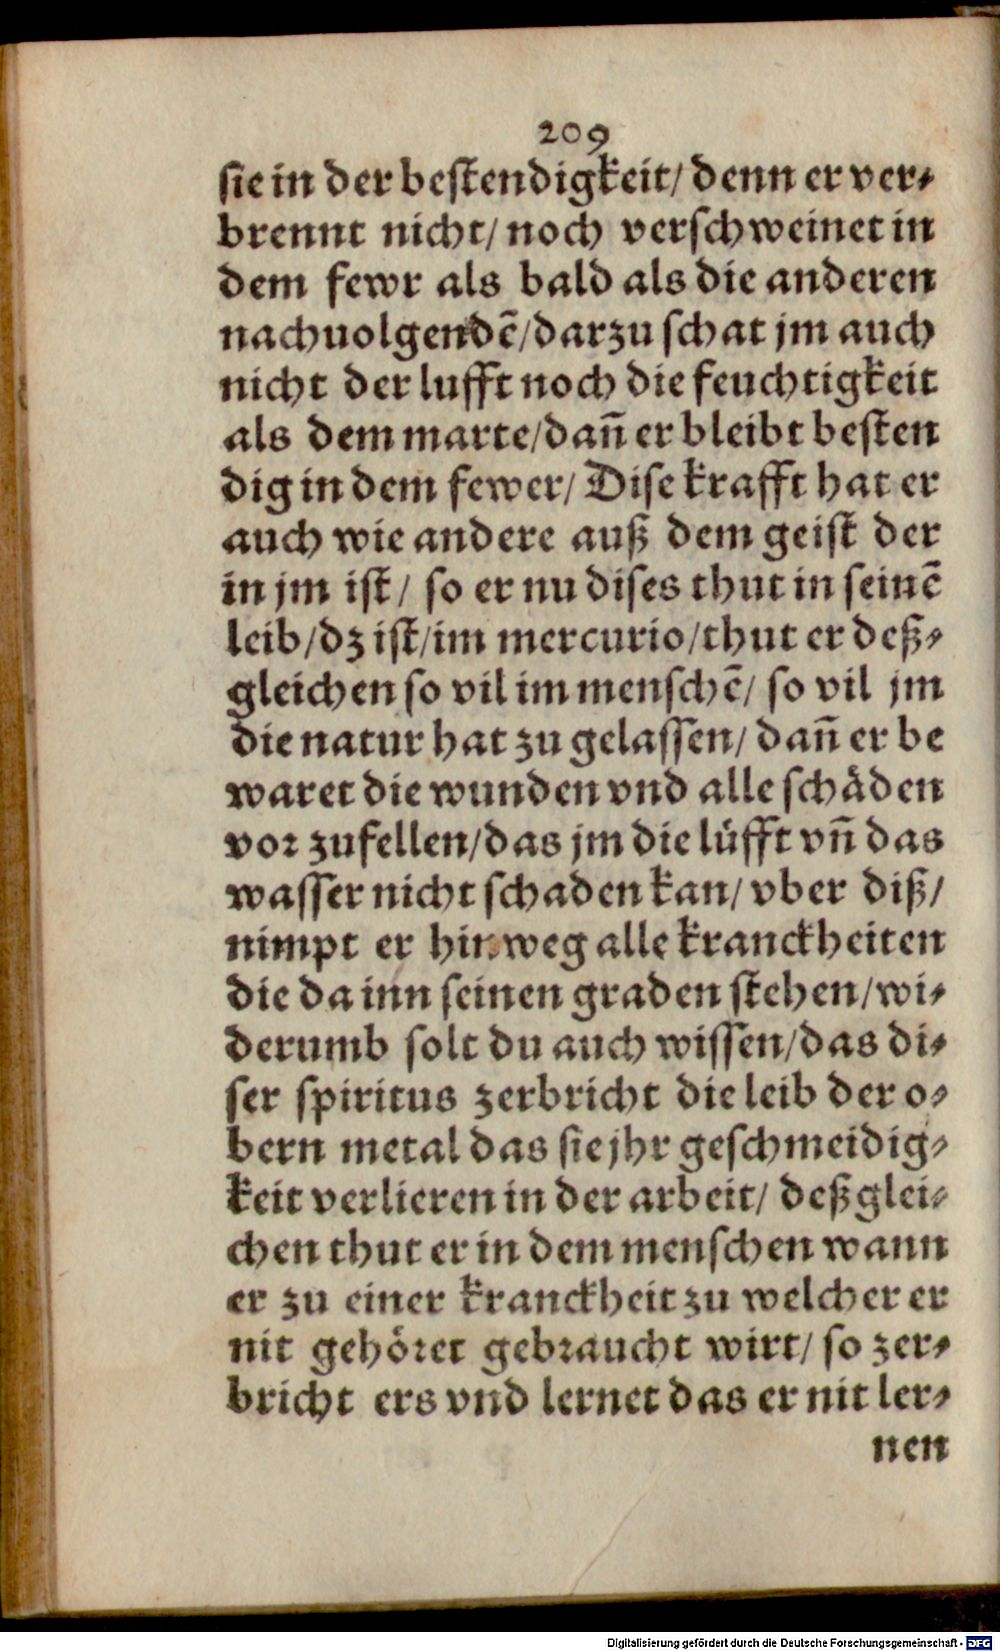 209
sie in der bestendigkeit/ denn er ver⸗
brennt nicht/ noch verschweinet in
dem fewr als bald als die anderen
nachuolgendẽ/darzu schat jm auch
nicht der lufft noch die feuchtigkeit
als dem marte/dañ er bleibt besten
dig in dem fewer/ Dise krafft hat er
auch wie andere auß dem geist der
in jm ist/ so er nu dises thut in seinẽ
leib/dz ist/im mercurio/thut er deß⸗
gleichen so vil im menschẽ/ so vil jm
die natur hat zu gelassen/ dañ er be
waret die wunden vnd alle schäden
vor zufellen/das jm die lüfft vñ das
wasser nicht schaden kan/ vber diß/
nimpt er hinweg alle kranckheiten
die da inn seinen graden stehen/wi⸗
derumb solt du auch wissen/das di⸗
ser spiritus zerbricht die leib der o⸗
bern metal das sie jhr geschmeidig⸗
keit verlieren in der arbeit/ deßglei⸗
chen thut er in dem menschen wann
er zu einer kranckheit zu welcher er
nit gehöret gebraucht wirt/ so zer⸗
bricht ers vnd lernet das er nit ler⸗
nen
Digitalisierung gefördert durch die Deutsche Forschungsgemeinschaft - DFG